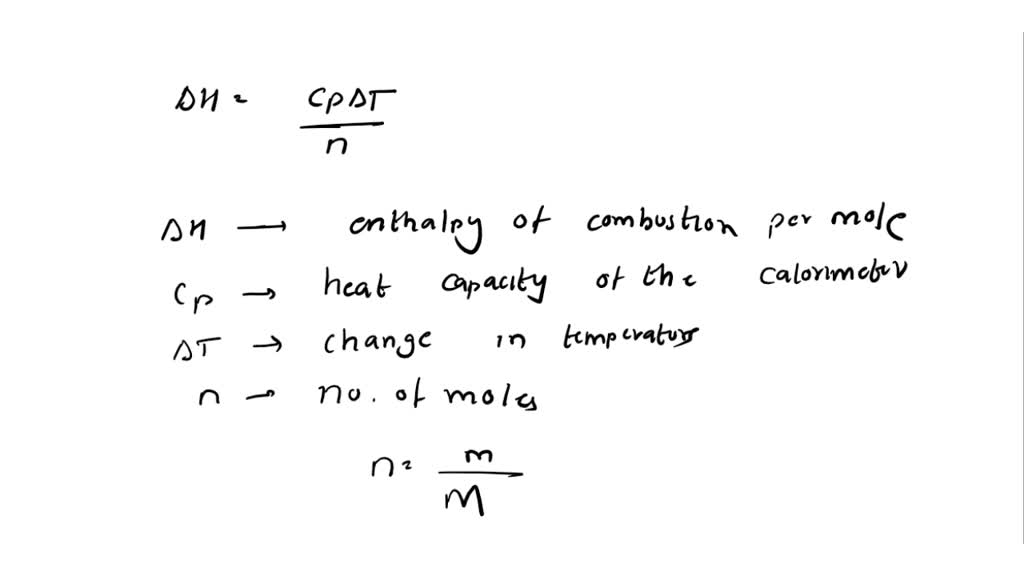 ΔH = CpΔT / n
ΔH → enthalpy of combustion per mole
Cp → heat capacity of the calorimeter
ΔT → change in temperature
n → no. of moles
n = m / M